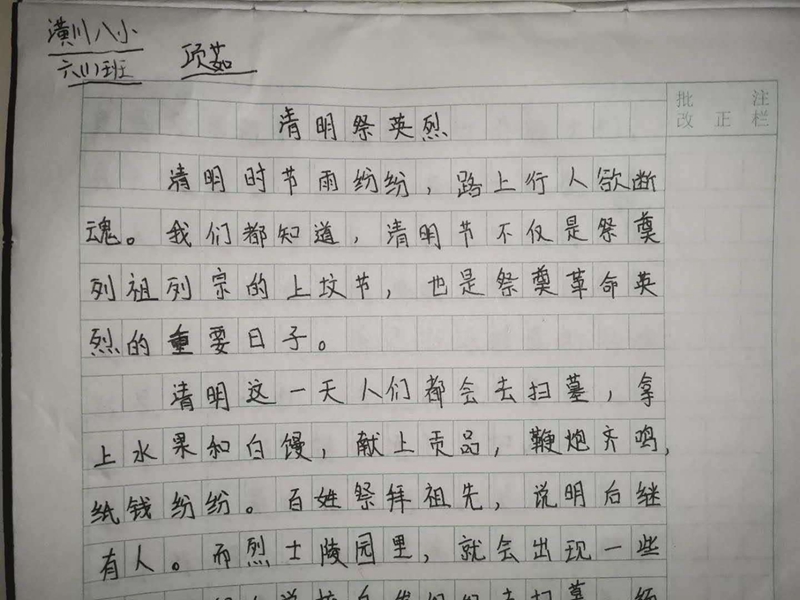 潢川八小
六(1)班 项茹
批注
改正栏
清明祭英烈
清明时节雨纷纷，路上行人欲断
魂。我们都知道，清明节不仅是祭奠
列祖列宗的上坟节，也是祭奠革命英
烈的重要日子。
清明这一天人们都会去扫墓，拿
上水果和白馒，献上贡品，鞭炮齐鸣，
纸钱纷纷。百姓祭拜祖先，说明后继
有人。而烈士陵园里，就会出现一些
去扫墓，